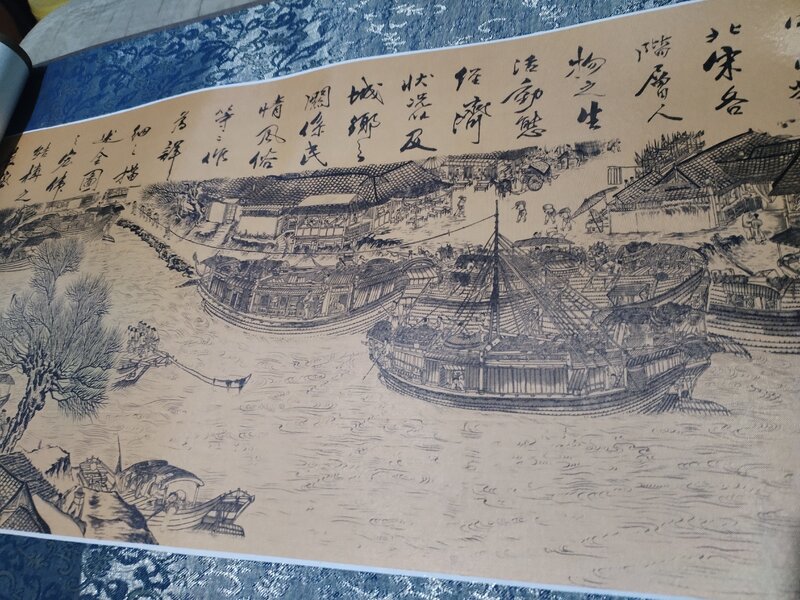 北宋各
階層人
物之生
活動態
經濟
狀况以及
城鄉之
關係民
情風俗
等々作
為詳
細之描
述全圖
之宏偉
結構之